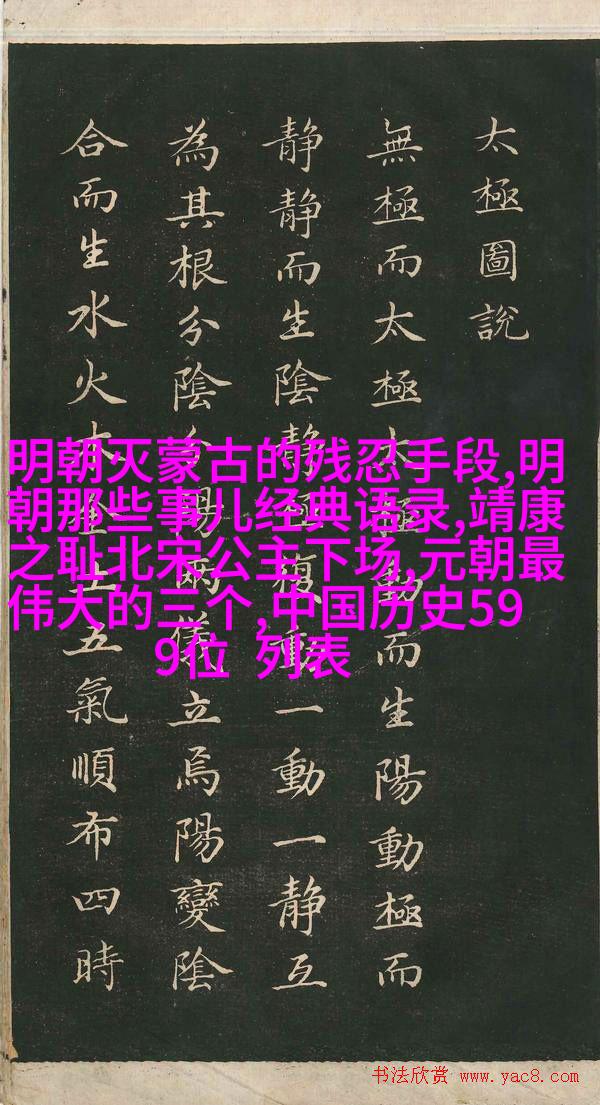 太極圖說
無極而太極太極動而生陽動極而
静静而生陰静極復動一動一静互
為其根分陰分陽兩儀立焉陽變陰
合而生水火木金土五氣順布四時
明朝灭蒙古的残忍手段,明
朝那些事儿经典语录,靖康
之耻北宋公主下场,元朝最
伟大的三个,中国历史59
9位 列表
书法欣赏 www.yac8.com